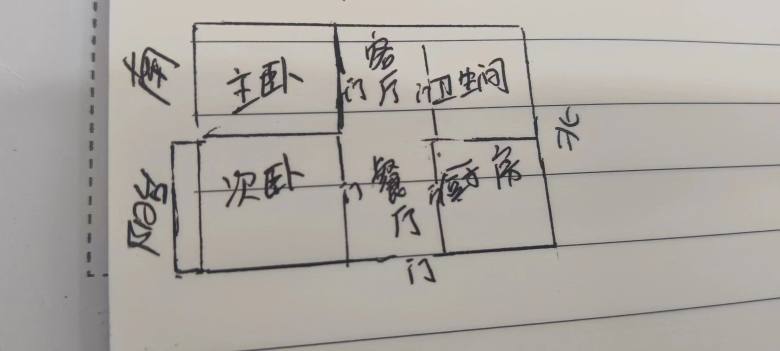 南
主卧
客厅
门
门
卫生间
北
阳台
次卧
门
餐厅
门
厨房
门